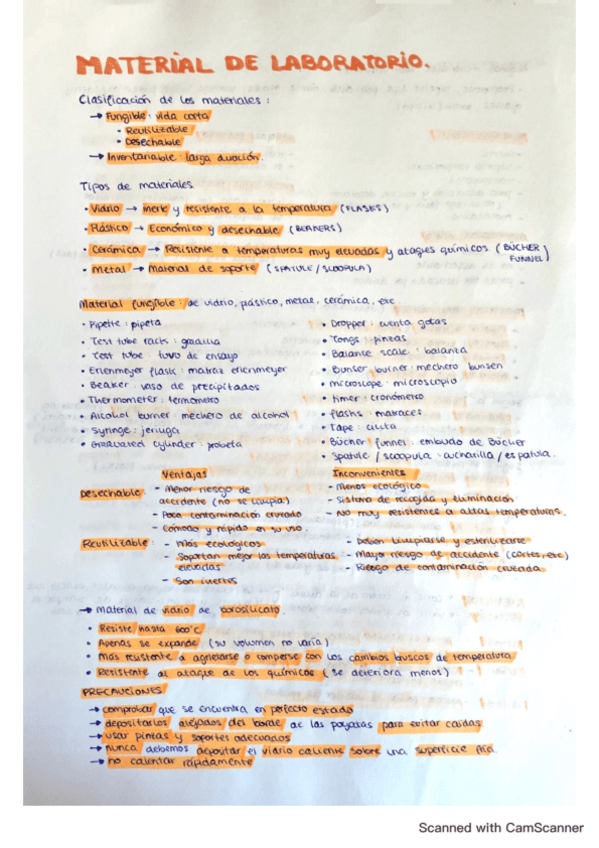 MATERIAL DE LABORATORIO.
Clasificación de los materiales :
→ Fungible : vida corta
• Reutilizable
• Desechable
→ Inventariable : larga duración.
Tipos de materiales
• Vidrio → inerte y resistente a la temperatura (FLASKS)
• Plástico → Económico y desechable (BEAKERS)
• Cerámica → Resistente a temperaturas muy elevadas y ataques químicos (BÜCHER FUNNEL)
• Metal → Material de soporte (SPATULE / SCOOPULA)
Material fungible : de vidrio, plástico, metal, cerámica, etc
• Pipette : pipeta
• Test tube rack : gradilla
• Test tube : tuvo de ensayo
• Erlenmeyer flask : matraz erlenmeyer
• Beaker : vaso de precipitados
• Thermometer : termometro
• Alcohol burner : mechero de alcohol
• Syringe : jeringa
• Graduated cylinder : probeta
• Dropper : cuenta gotas
• Tongs : pinzas
• Balance scale : balanza
• Bunser burner : mechero bunsen
• microscope : microscopio
• timer : cronómetro
• flasks : matraces
• Tape : cinta
• Bücher funnel : embudo de Bücher
• Spatule / scoopula : cucharilla / espatula.
Ventajas Inconvenientes
Desechable: - Menor riesgo de accidente (no se limpia) - Menos ecológico
- Sistema de recogida y eliminación
- Poca contaminación cruzada - No muy resistentes a altas temperaturas.
- Cómodo y rápido en su uso.
Reutilizable : - Más ecológicos - Deben limpiarse y esterilizarse
- Soportan mejor las temperaturas elevadas - Mayor riesgo de accidente (cortes, etc)
- Son inertes - Riesgo de contaminación cruzada.
→ Material de vidrio de borosilicato.
• Resiste hasta 600°C
• Apenas se expande (su volumen no varía)
• Más resistente a agrietarse o romperse con los cambios bruscos de temperatura
• Resistente al ataque de los químicos (se deteriora menos)
PRECAUCIONES
→ comprobar que se encuentra en perfecto estado
→ depositarlos alejados del borde de las poyatas para evitar caídas
→ usar pinzas y soportes adecuados
→ nunca debemos depositar el vidrio caliente sobre una superficie fría.
→ no calentar rápidamente
Scanned with CamScanner